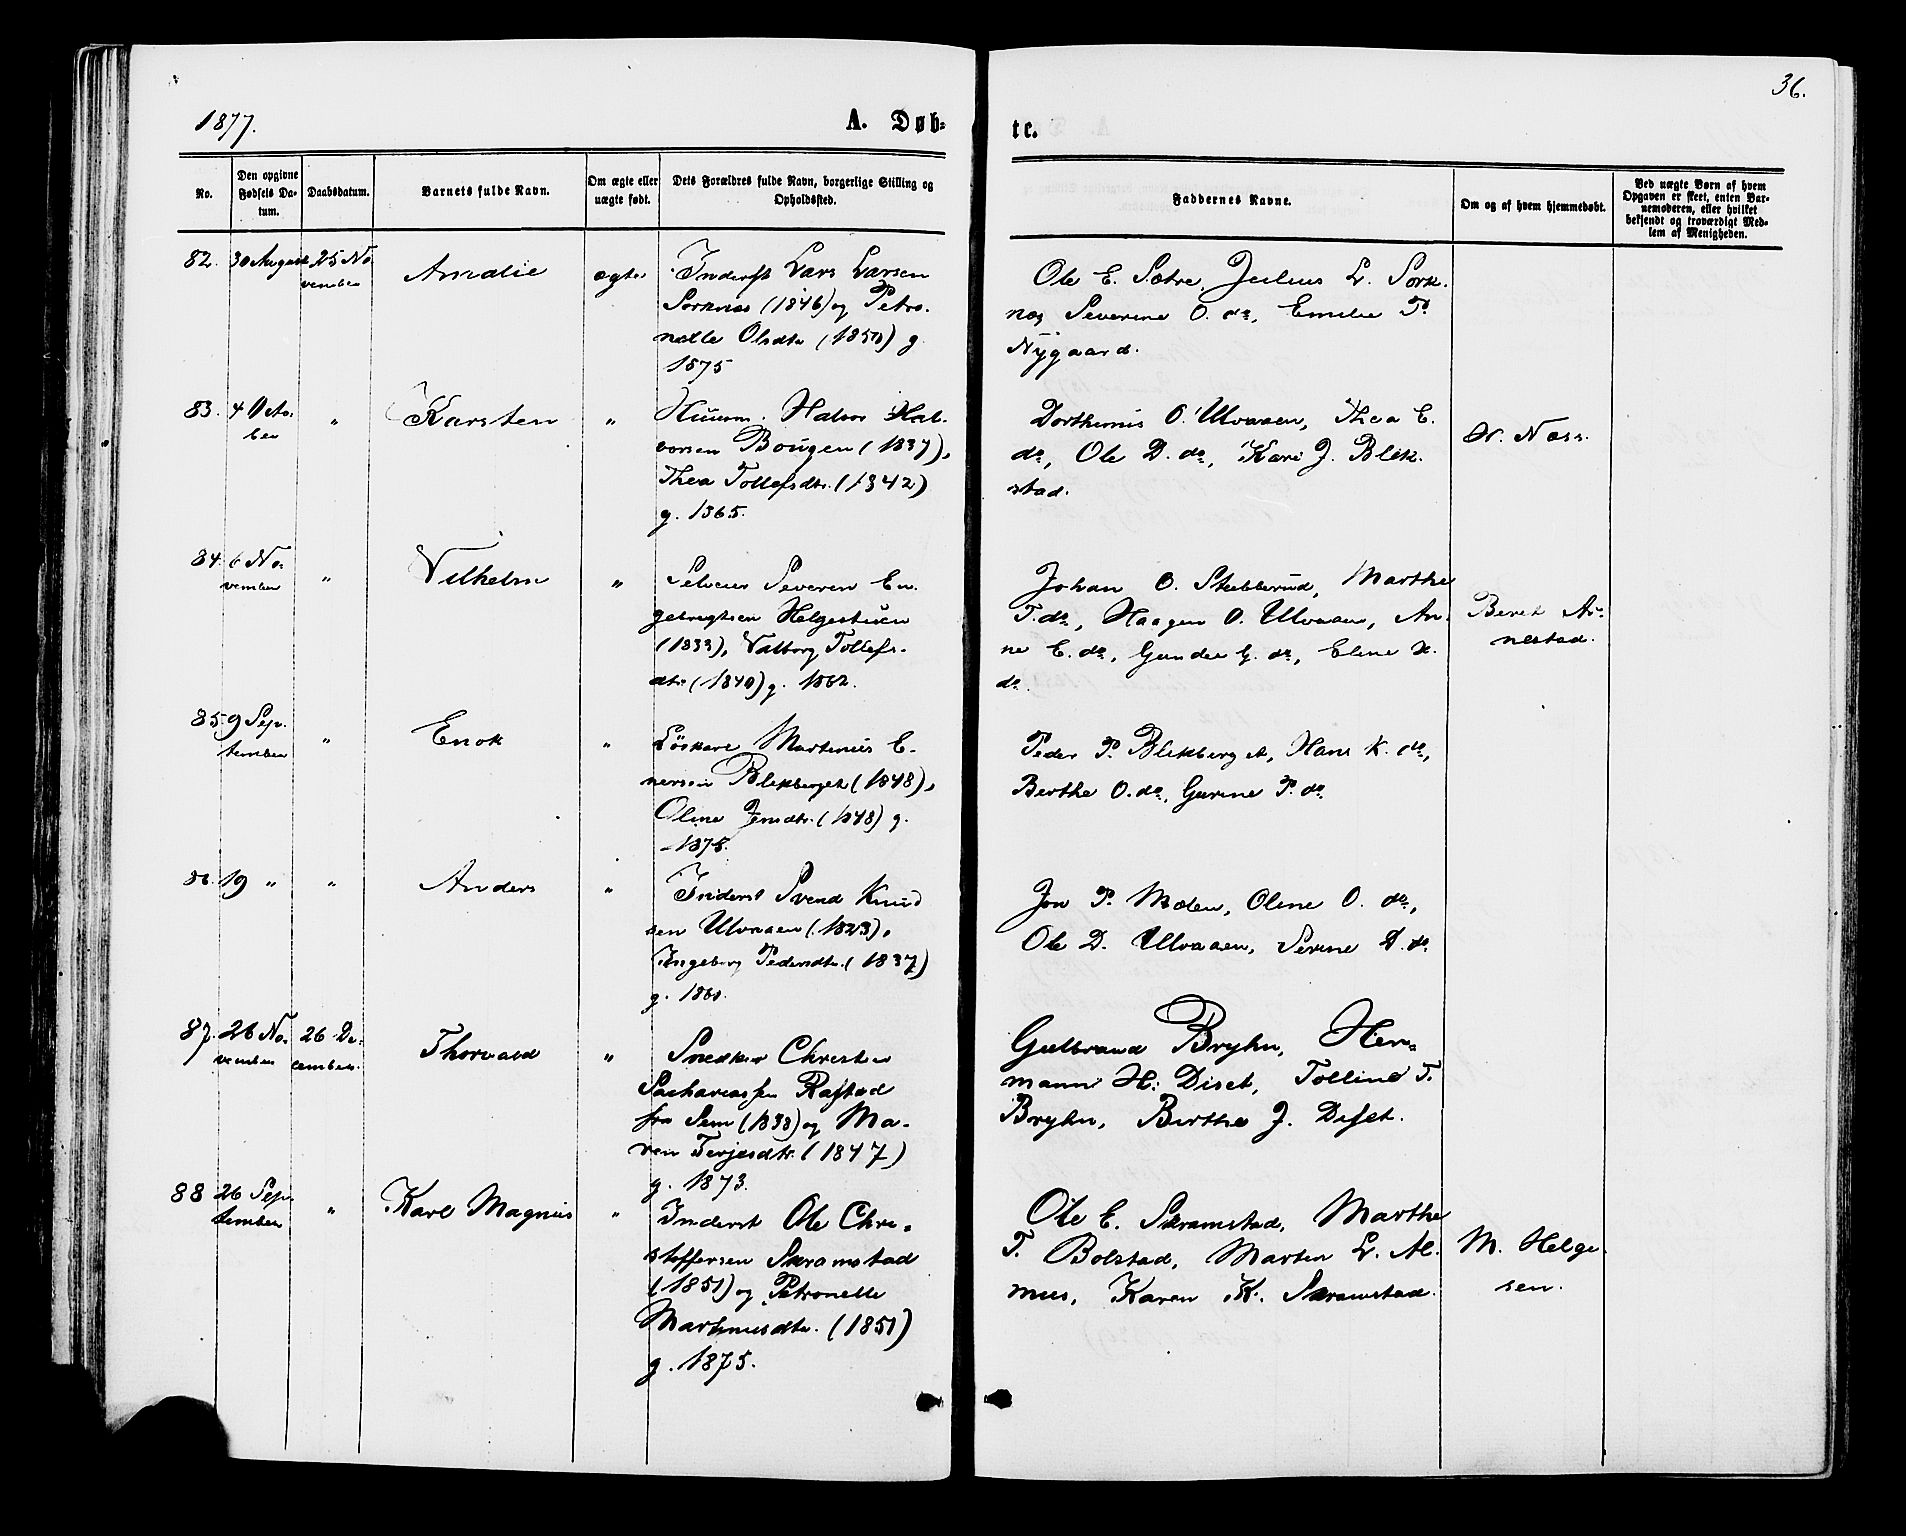 36.
1877.
A. Døb-
te.
No.
Den opgivne Fødsels Da-tum.
Daabsdatum.
Barnets fulde Navn.
Om ægte eller uægte født.
Dets Forældres fulde Navn, borgerlige Stilling og Opholdssted.
Faddernes Navne.
Om og af hvem hjemmedøbt.
Ved uægte Børn af hvem Opgaven er skeet, enten Bar-nemoderen, eller hvilket bekjendt og troværdigt Med-lem af Menigheden.
82. 30 August 25 No-
vember
Amalie
ægte
Inderst Lars Larsen
Sorknes (1846) og Petro-
nelle Olsdtr (1850) g.
1875
Ole E. Sætre, Julius L. Sork-
næs Severine O. do, Emilie P.
Nygaard.
83. 4 Octo-
ber
"
Karsten
"
Huusm. Halvor Hal-
vorsen Bougen (1837),
Thea Tollefsdtr. (1842)
g. 1865.
Dorthinus O. Ulvaaen, Thea E.
do, Ole D. do, Kari J. Blek-
stad.
N. Næss.
84. 6 No-
vember
"
Vilhelm
"
Selveier Severin En-
gebregtsen Helgestuen
(1833), Valborg Tollefs-
dtr. (1840) g. 1862.
Johan O. Stebberud, Marthe
T. do, Haagen O. Ulvaaen, An-
ne E. do, Gundee G. do, Eline H.
do.
Beret Ar-
nestad.
85. 9 Sep-
tember
"
Enok
"
Løskarl Martinus E-
nersen Blekberget (1848),
Oline Jensdtr. (1848) g.
1875.
Peder P. Blekberget, Hans K. do,
Berthe O. do, Gurine P. do
86. 19 "
"
Anders
"
Inderst Svend Knud
sen Ulvaaen (1823),
Ingeborg Pedersdtr. (1837)
g. 1860.
Jon P. Moen, Oline O. do,
Ole D. Ulvaaen, Serine D. do
87. 26 No-
vember
26 De-
cember.
Thorvald
"
Snedker Christen
Sachariassen Rafstad
fra Sem (1838) og Ma-
ren Terjesdtr. (1847)
g. 1873.
Gulbrand Bryhn, Her-
mann H. Diset, Tolline T.
Bryhn, Berthe J. Diset.
88 26 Sep-
tember
"
Karl Magnus
"
Inderst Ole Chri-
stoffersen Skramstad
(1851) og Petronelle
Martinusdtr. (1851)
g. 1875.
Ole E. Skramstad, Marthe
T. Bolstad, Martin L. Al-
mus, Karen K. Skramstad.
M. Helge-
sen.